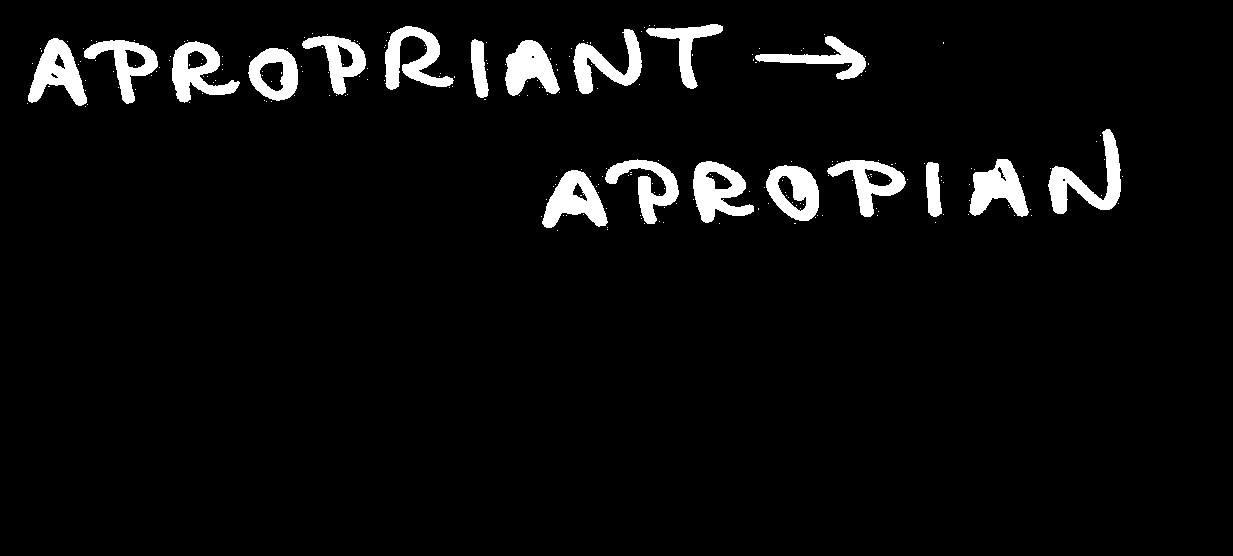 APROPRIANT →
APROPIAN